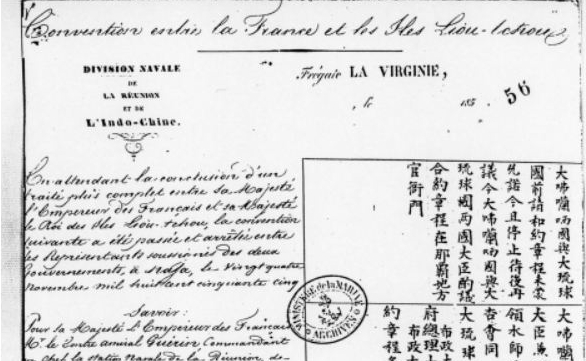 Convention entre la France et les Iles Liou-tchou
DIVISION NAVALE
DE
LA RÉUNION
ET DE
L'Indo-Chine.
Frégate LA VIRGINIE,
le 185
56
En attendant la conclusion d'un
traité plus complet entre sa Majesté
l'Empereur des Français et sa Majesté
le Roi des Iles Liou-tchou, la convention
suivante a été passée et arrêtée entre
les Représentants soussignés des deux
Gouvernements, à Nafa, le Vingt quatre
novembre mil huit cent cinquante cinq
Savoir:
Pour sa Majesté l'Empereur des Français
Mr. le Contre amiral Guérin Commandant
en chef la station Navale de la Réunion de
大咈囒哂國與大琉球
國前請和約章程未蒙
允諾今且停止待後再
議今大咈囒哂國與大
琉球國兩國大臣酌議
合約章程在那霸地方
官衙門
大咈囒
大臣
領水師
吿會同
大琉球
布政大
府總理
布政大
約章程
MINISTÈRE de la MARINE
ARCHIVES